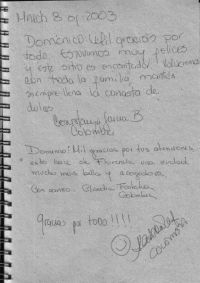 March 8 of 2003
Domenico Mil gracias por
todo. Estuvimos muy felices
y este sitio es encantador! Volveremos
con toda la familia, mantén
siempre llena la canasta de
dulces
García B
Colombia
Domenico: Mil gracias por tus atenciones
esto hace de Florencia una ciudad
mucho más bella y acogedora.
Con cariño. Claudia
Colombia
Gracias por todo !!!!
COLOMBIA